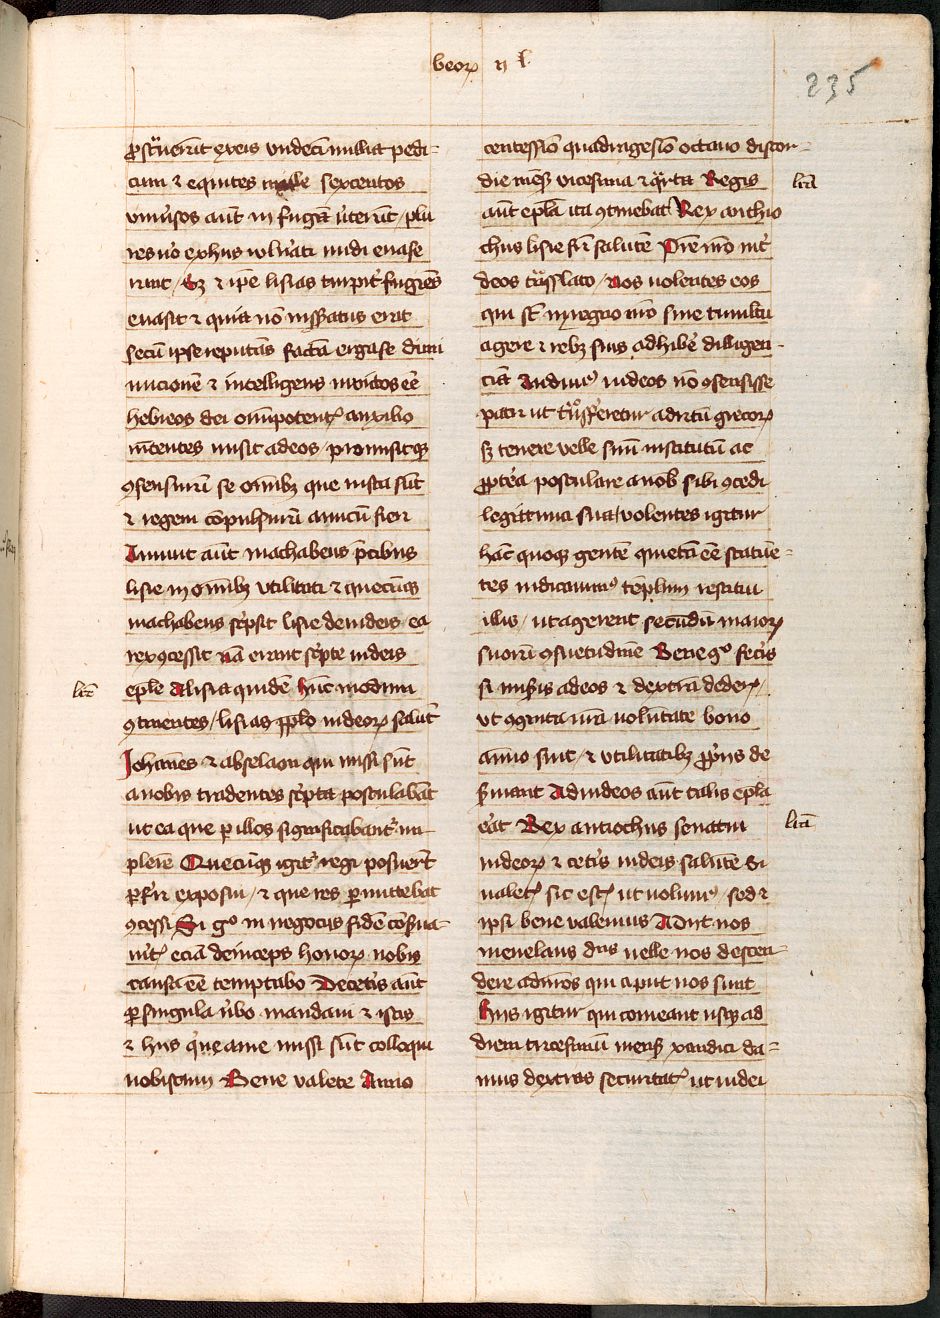 beoꝝ ij l
235
ꝓstᵃuerūt ex eis vndecī millia pedi-
tum ⁊ equites mille sexcentos
vniuꝰsos aūt in fugā uꝰterūt / plu
res uꝰo ex hijs wlnꝰati nudi euase
runt / Sꝫ ⁊ ip̄e lisias turpitꝰ fugiēs
euasit ⁊ quia nō insēsatus erat
secū ipse reputās factā erga se dimi
nucionē ⁊ intelligens inuictos eē
hebreos dei om̄ipotentꝭ auxilio
initentes misit ad eos / promisitqꝫ
ꝯsensurū se om̄ibꝫ que iusta sūt
⁊ regem cōpulsurū amicū fieri
Annuit aūt machabeus p̄cibus
lisie in om̄ibꝫ vtilitati ⁊ quecūqꝫ
machabeus scꝰpsit lisie de iudeis ea
rex ꝯcessit nā erant scꝰpte iudeis
eple A lisia quidē hūc modum
lrē
ꝯtinentes / lisias pplo iudeoꝝ salutē
Johānes ⁊ abselaon qui missi sūt
a nobis tradentes scꝰpta postulabāt
ut ea que ꝑ illos significabantꝰ im-
plerē Quecūqꝫ igitꝰ regi potuerūt
ꝑferri exposui / ⁊ que res ꝑmittebat
ꝯcessi Si gͦ in negocijs fidē cōsꝰua-
uꝰitꝭ eciā deinceps honoꝝ nobis
causa eē temptabo De cetꝰis aūt
ꝑ singula uꝰbo mandaui ⁊ istis
⁊ hijs qui a me missi sūt colloqui
uobiscum Bene valete Anno
centessīo quadragesīo octauo dioscor-
die mēsꝭ vicesima ⁊ qᵃrta Regis
lrā
aūt epl̄a ita ꝯtinebat Rex anthio
chus lisie frī salutē Pꝰre nꝰro intꝰ
deos trᵃnslato / Nos uolentes eos
qui sūt in regno nꝰro sine tumltu
agere ⁊ rebꝫ suis adhibē dilligen-
ciā Audiuimꝰ iudeos nō ꝯsensisse
patri ut trᵃnsferetur ad ritū grecoꝝ
sꝫ tenere velle suū institutū ac
ꝓptꝰea postulare a nobꝭ sibi ꝯcedi
legittima sua / volentes igitur
hāc quoqꝫ gentē quietā eē statuē-
tes iudicauimꝰ templum restitui
illis / ut agerent secūdū maioꝝ
suorū ꝯsuetudinē Bene gͦ fecꝰis
si misꝰis ad eos ⁊ dextrā dederꝭ /
vt ꝯgnita nꝰra uolūtate bono
animo sint / ⁊ vtilitatibꝫ ꝓpꝰijs de
sꝰuiant Ad iudeos aūt talis epl̄a
lrā
eꝰat Rex antiochus senatui
iudeoꝝ ⁊ cetꝰis iudeis salutē Si
ualetꝭ sic estꝭ ut uolumꝰ / sed ⁊
ipsi bene valemus Adijt nos
menelaus dn̄s velle nos descen-
dere ad nꝰros qui aput nos sunt
hijs igitur qui comeant usqꝫ ad
diem tricesimū mensꝭ xandici da-
mus dextras securitatꝭ ut iudei